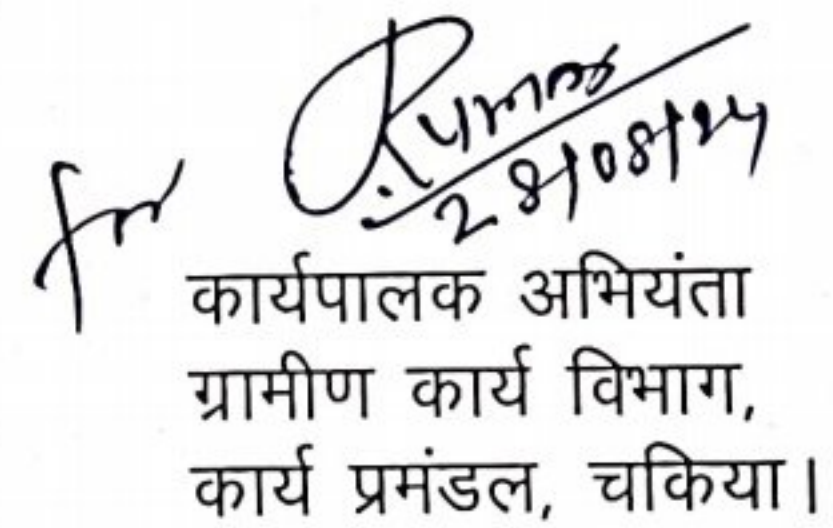 28/08/24
for
कार्यपालक अभियंता
ग्रामीण कार्य विभाग,
कार्य प्रमंडल, चकिया।